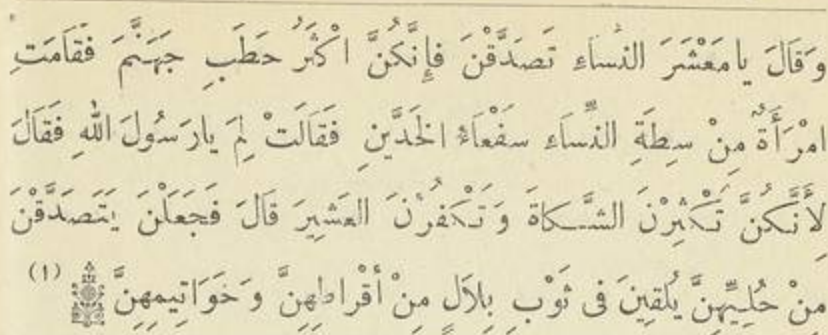 وَقَالَ يَا مَعْشَرَ النِّسَاءِ تَصَدَّقْنَ فَإِنَّكُنَّ اكْثَرُ حَطَبِ جَهَنَّمَ فَقَامَتِ
امْرَأَةٌ مِنْ سِطَةِ النِّسَاءِ سَفْعَاءُ الْخَدَّيْنِ فَقَالَتْ لِمَ يَا رَسُولَ اللهِ فَقَالَ
لِأَنَّكُنَّ تُكْثِرْنَ الشَّكَاةَ وَتَكْفُرْنَ العَشِيرَ قَالَ فَجَعَلْنَ يَتَصَدَّقْنَ
مِنْ حُلِيِّهِنَّ يُلْقِينَ فى ثَوْبِ بِلاَلٍ مِنْ أَقْرَاطِهِنَّ وَخَوَاتِيمِهِنَّ (١)